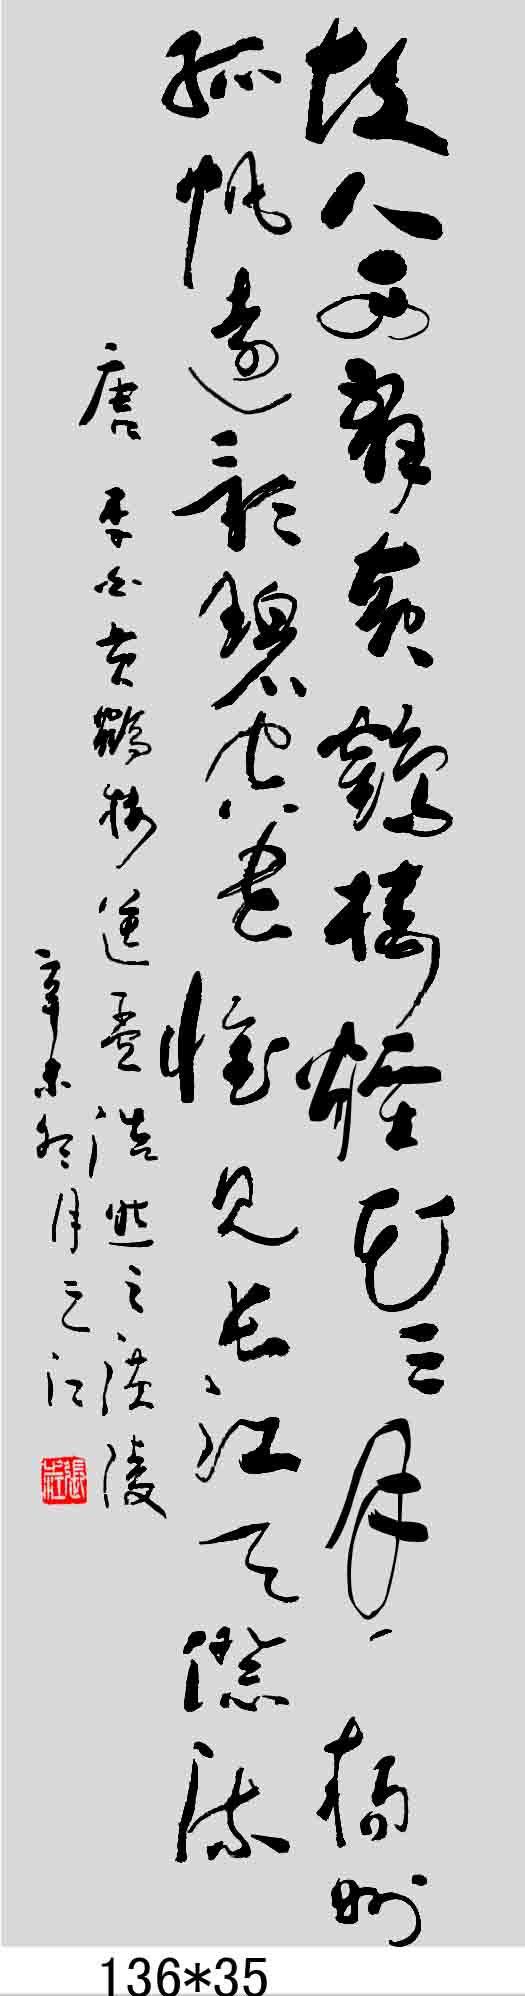 故人西辭黄鶴樓煙花三月下楊州
孤帆遠影碧空盡惟見長江天際流
唐李白黄鶴樓送孟浩然之廣陵
辛未冬月之江
136*35